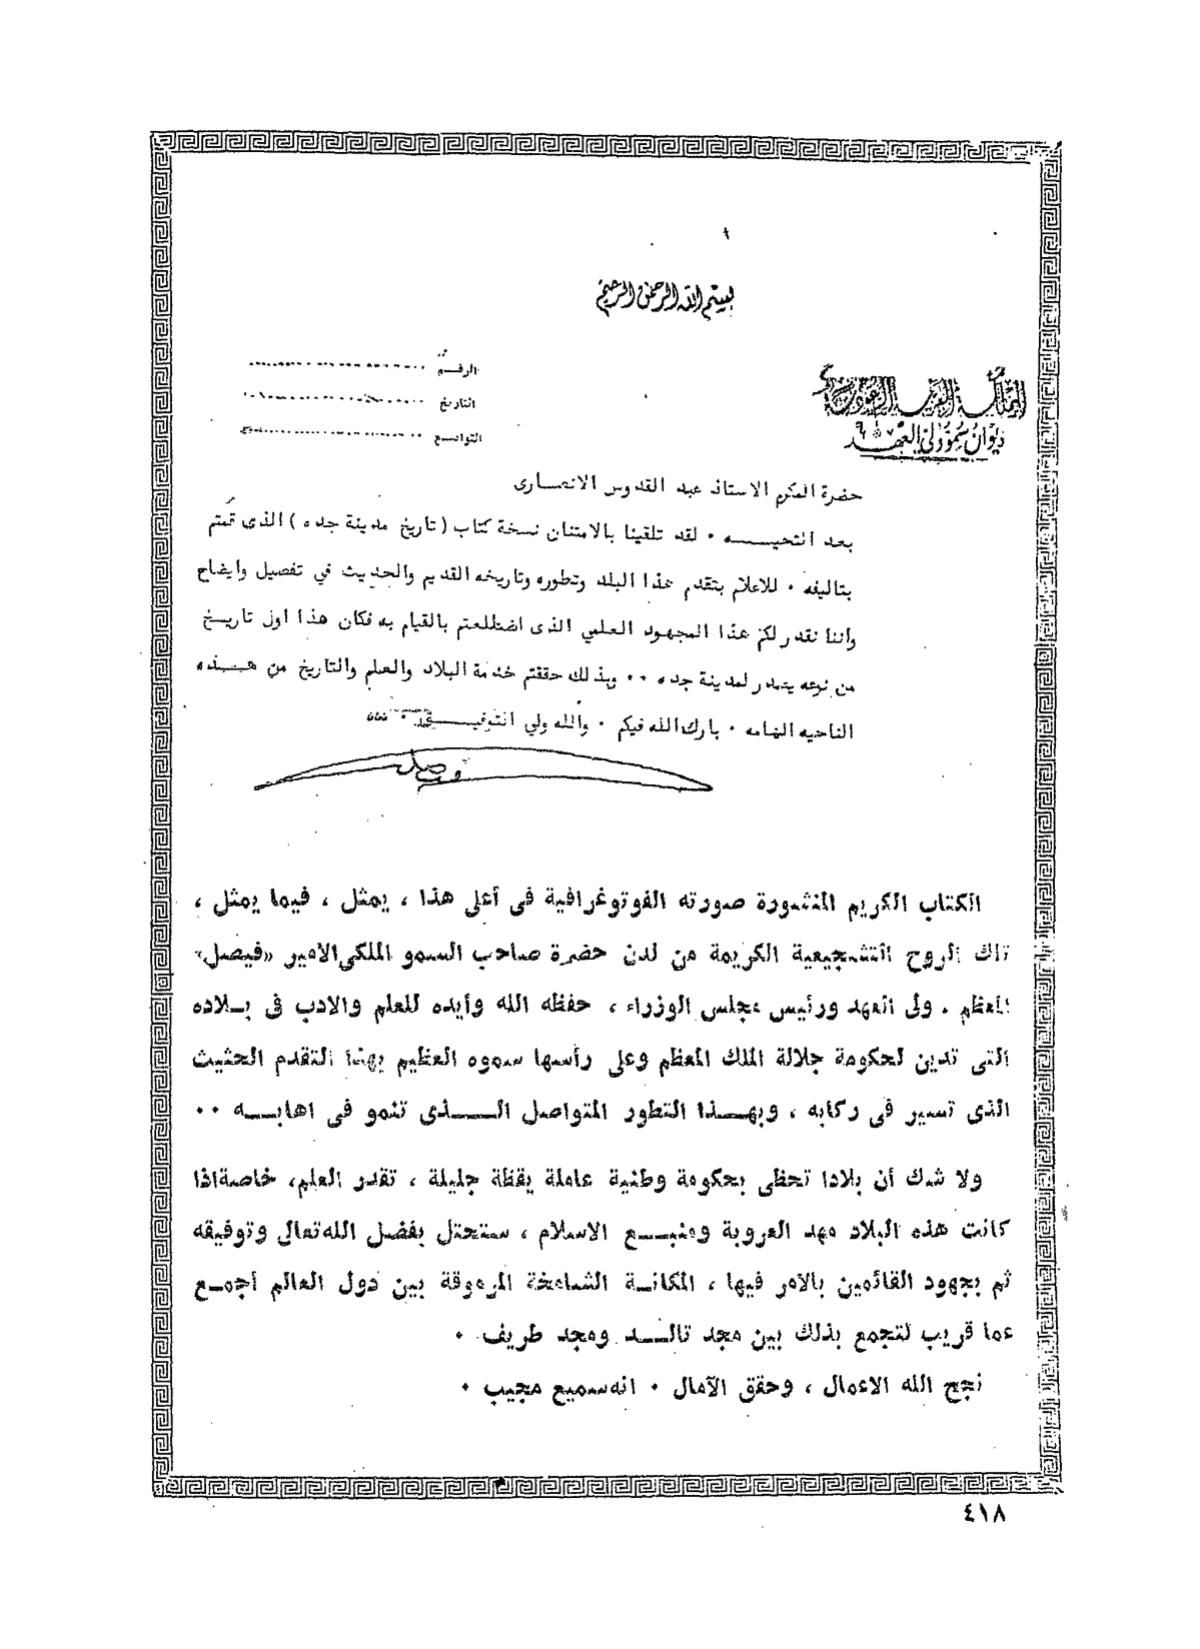 بسم الله الرحمن الرحيم
المملكة العربية السعودية
ديوان سمو ولي العهد
الرقم
التاريخ
التوابع
حضرة المكرم الاستاذ عبد القدوس الانصارى
بعد التحيـــه ٠ لقد تلقينا بالامتنان نسخة كتاب (تاريخ مدينة جده) الذى قمتم
بتاليفه ٠ للاعلام بتقدم هذا البلد وتطوره وتاريخه القديم والحديث في تفصيل وايضاح
واننا نقدر لكم هذا المجهود العلمي الذى اضطلعتم بالقيام به فكان هذا اول تاريـخ
من نوعه يصدر لمدينة جده ٠٠ وبذلك حققتم خدمة البلاد والعلم والتاريخ من هـــذه
الناحيه الهامه ٠ بارك الله فيكم ٠ والله ولي التوفيـــق ٠
فيصل
الكتاب الكريم المنشورة صورته الفوتوغرافية فى أعلى هذا ، يمثل ، فيما يمثل ،
تلك الروح التشجيعية الكريمة من لدن حضرة صاحب السمو الملكى الامير «فيصل»
المعظم . ولى العهد ورئيس مجلس الوزراء ، حفظه الله وأيده للعلم والادب فى بـلاده
التى تدين لحكومة جلالة الملك المعظم وعلى رأسها سموه العظيم بهذا التقدم الحثيث
الذى تسير فى ركابه ، وبهـــذا التطور المتواصل الـــــذى تنمو فى اهابـــه ٠٠
ولا شك أن بلادا تحظى بحكومة وطنية عاملة يقظة جليلة ، تقدر العلم، خاصة اذا
كانت هذه البلاد مهد العروبة ومنبـــع الاسلام ، ستحتل بفضل الله تعالى وتوفيقه
ثم بجهود القائمين بالامر فيها ، المكانـة الشامخة المرموقة بين دول العالم أجمـع
عما قريب لتجمع بذلك بين مجد تالـــد ومجد طريف ٠
نجح الله الاعمال ، وحقق الآمال ٠ انه سميع مجيب ٠
٤١٨